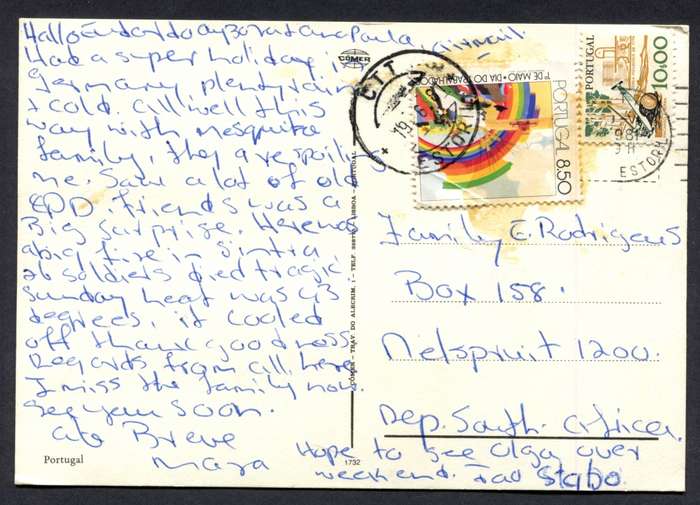 Hallo
and Paula
Airmail.
Had a super holiday in
Germany plenty rain
+ cold. All well this
way with mesquita
family, they are spoilin
me. Saw a lot of old
EDD. friends was a
Big surprise. Here was
a big fire in Sintra
26 soldiers died tragic.
Sunday heat was 43
degrees, it cooled
off thank goodness.
Regards from all here
I miss the family now.
See you soon.
ate Breve
Mara
Hope to see Olga over
weekend. Sabo
Portugal
1732
COMER
COMER - TRAV. DO ALECRIM, 1 - TELF. LISBOA - PORTUGAL
CTT
ESTORIL
1º DE MAIO · DIA DO TRABALHADOR
PORTUGAL 8.50
PORTUGAL
10$00
ESTORIL
Family E. Rodrigens
Box 158.
Nelspruit 1200.
Rep. South Africa.